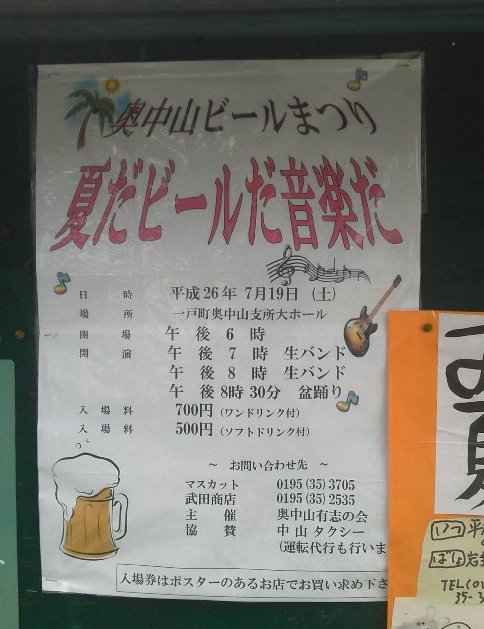 奥中山ビールまつり
夏だビールだ音楽だ
日 時 平成26年 7月19日 (土)
場 所 一戸町奥中山支所大ホール
開 場 午 後 6 時
開 演 午 後 7 時 生バンド
午 後 8 時 生バンド
午 後 8時 30分 盆踊り
入 場 料 700円 (ワンドリンク付)
入 場 料 500円 (ソフトドリンク付)
～ お問い合わせ先 ～
マスカット 0195 (35) 3705
武田商店 0195 (35) 2535
主 催 奥中山有志の会
協 賛 中 山 タクシー
(運転代行も行いま
入場券はポスターのあるお店でお買い求め下さ
夏
いつ 平
ばしょ 岩
TEL (0
35-3